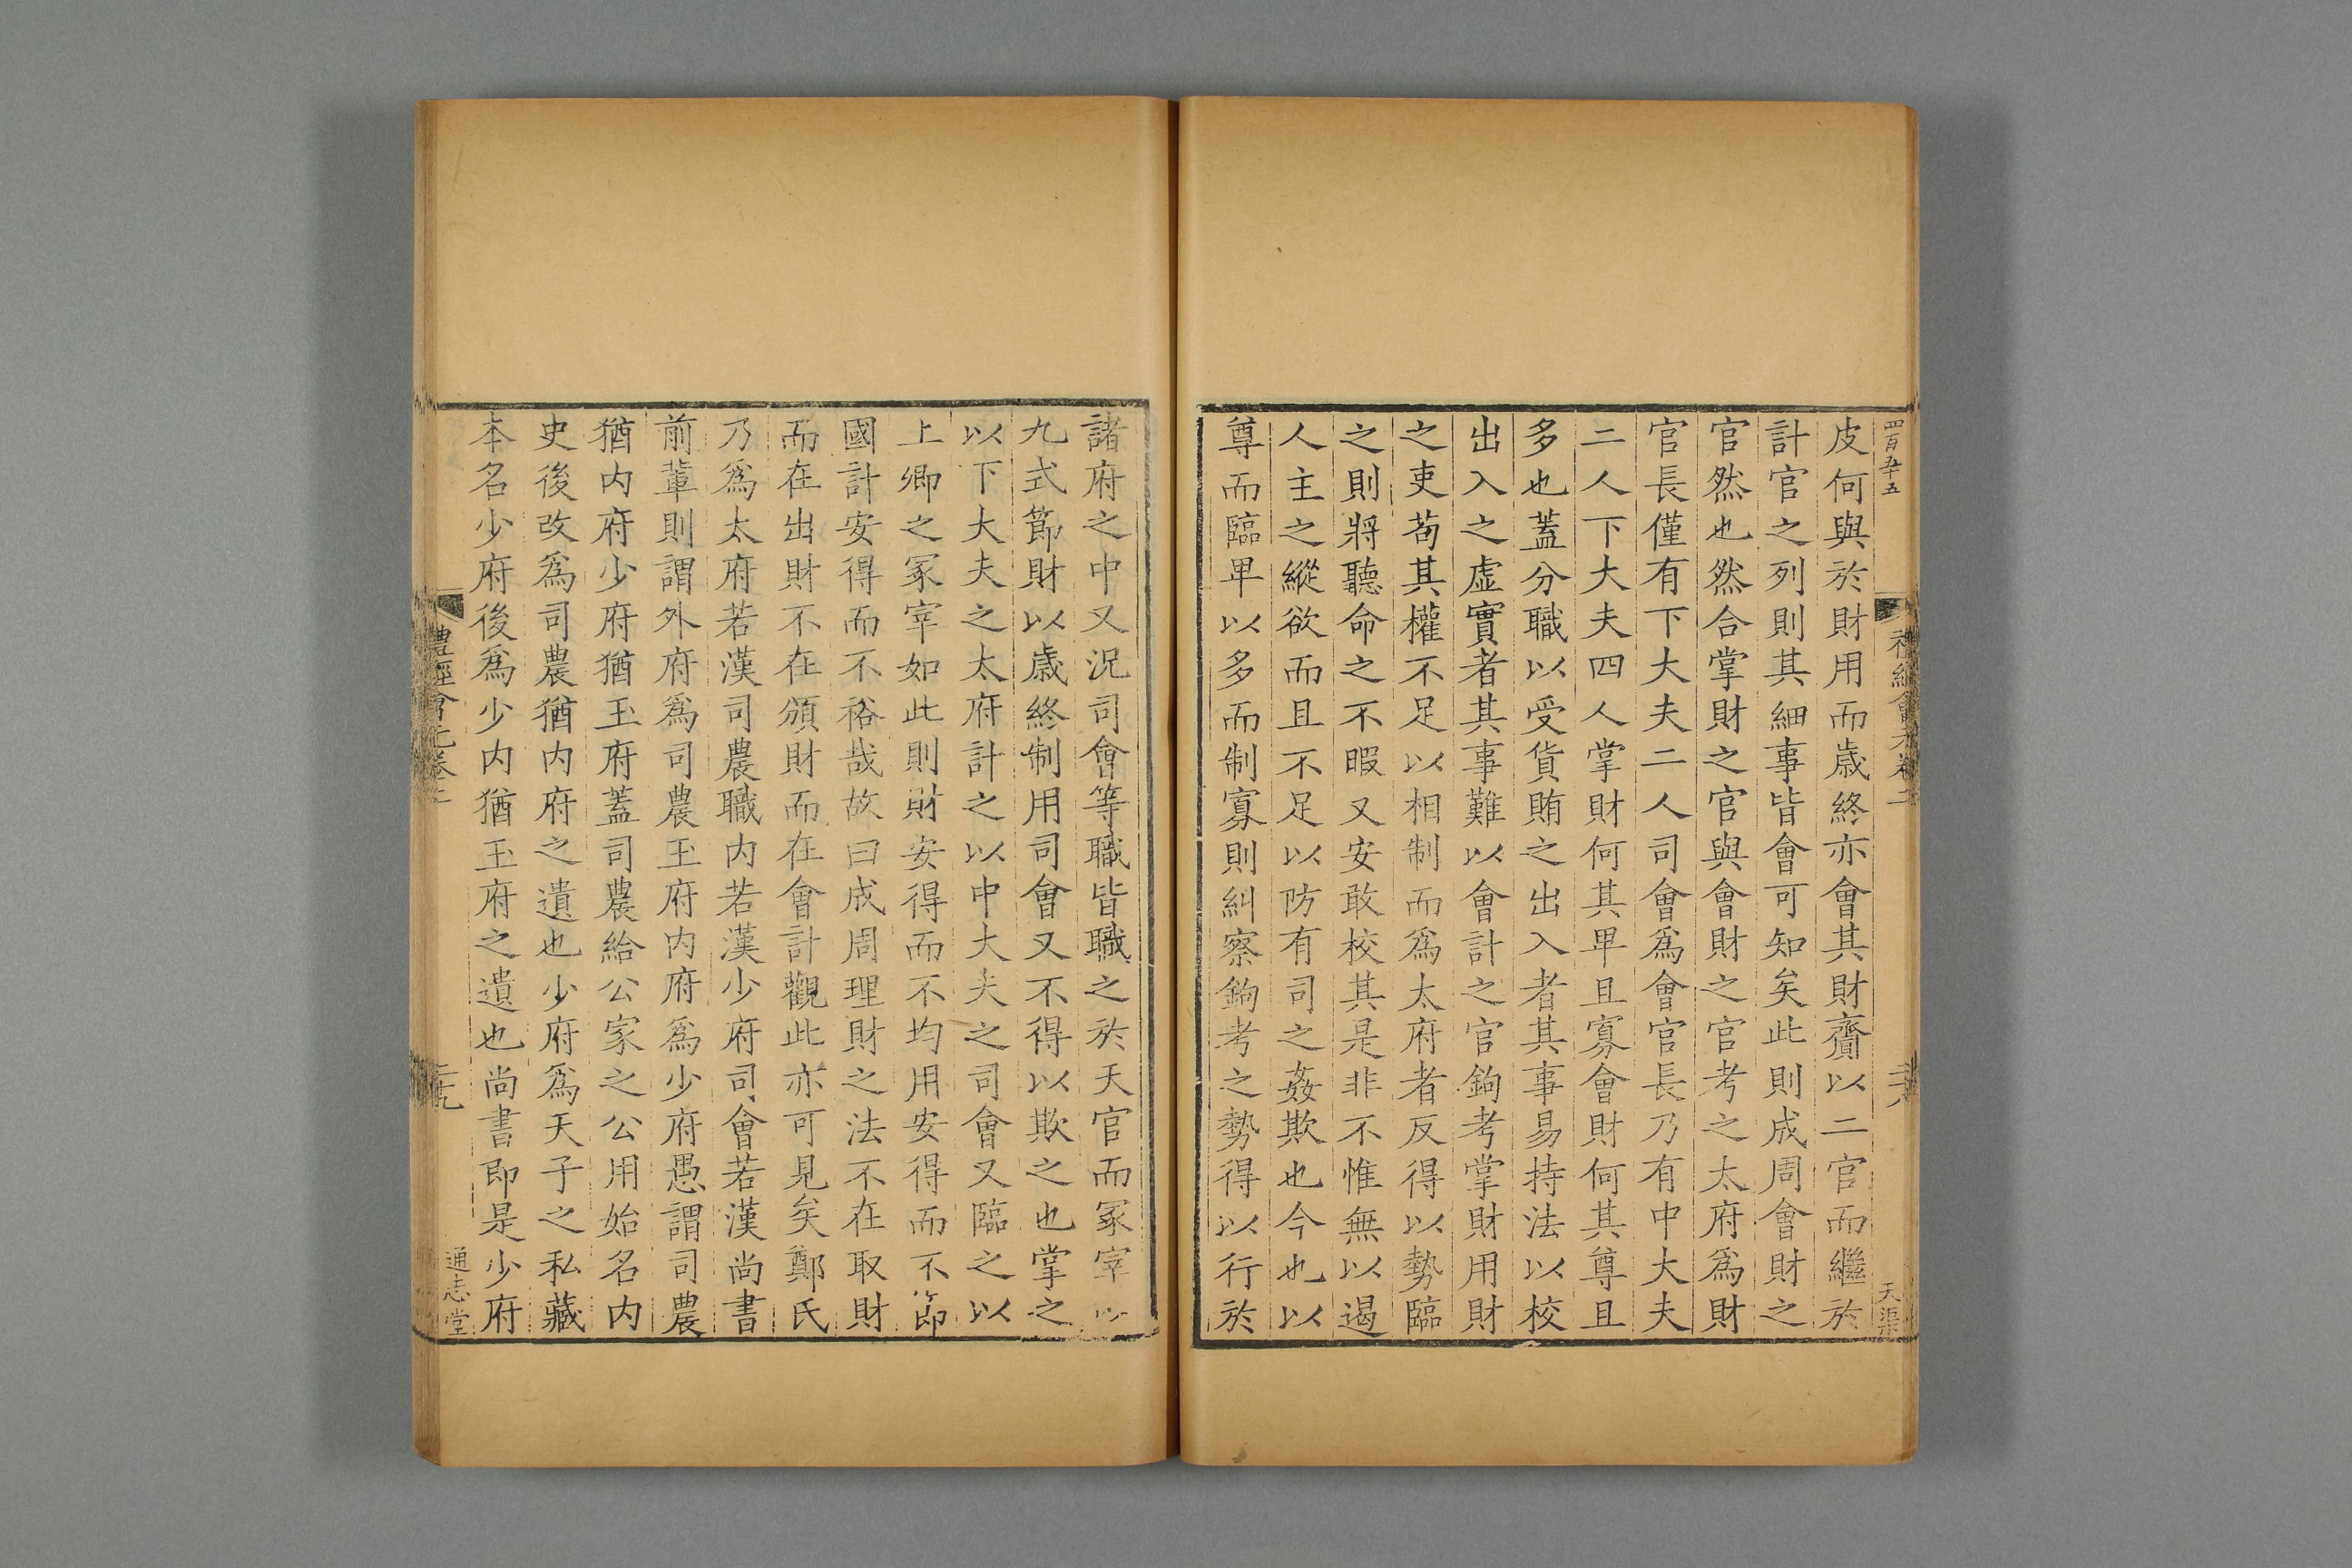 四百五十五
皮何與於財用而歳終亦會其財齎以二官而繼於
計官之列則其細事皆會可知矣此則成周會財之
官然也然合掌財之官與會財之官考之太府爲財
官長僅有下大夫二人司會爲會官長乃有中大夫
二人下大夫四人掌財何其卑且寡會財何其尊且
多也蓋分職以受貨賄之出入者其事易持法以校
出入之虚實者其事難以會計之官鉤考掌財用財
之吏苟其權不足以相制而爲太府者反得以勢臨
之則將聽命之不暇又安敢校其是非不惟無以遏
人主之縱欲而且不足以防有司之姦欺也今也以
尊而臨卑以多而制寡則糾察鉤考之勢得以行於
天渠
諸府之中又況司會等職皆職之於天官而冢宰以
九式節財以歳終制用司會又不得以欺之也掌之
以下大夫之太府計之以中大夫之司會又臨之以
上卿之冢宰如此則財安得而不均用安得而不節
國計安得而不裕哉故曰成周理財之法不在取財
而在出財不在頒財而在會計觀此亦可見矣鄭氏
乃爲太府若漢司農職内若漢少府司會若漢尚書
前輩則謂外府爲司農玉府内府爲少府愚謂司農
猶内府少府猶玉府蓋司農給公家之公用始名内
史後改爲司農猶内府之遺也少府爲天子之私藏
本名少府後爲少内猶玉府之遺也尚書即是少府
禮經會元卷二
二九
通志堂